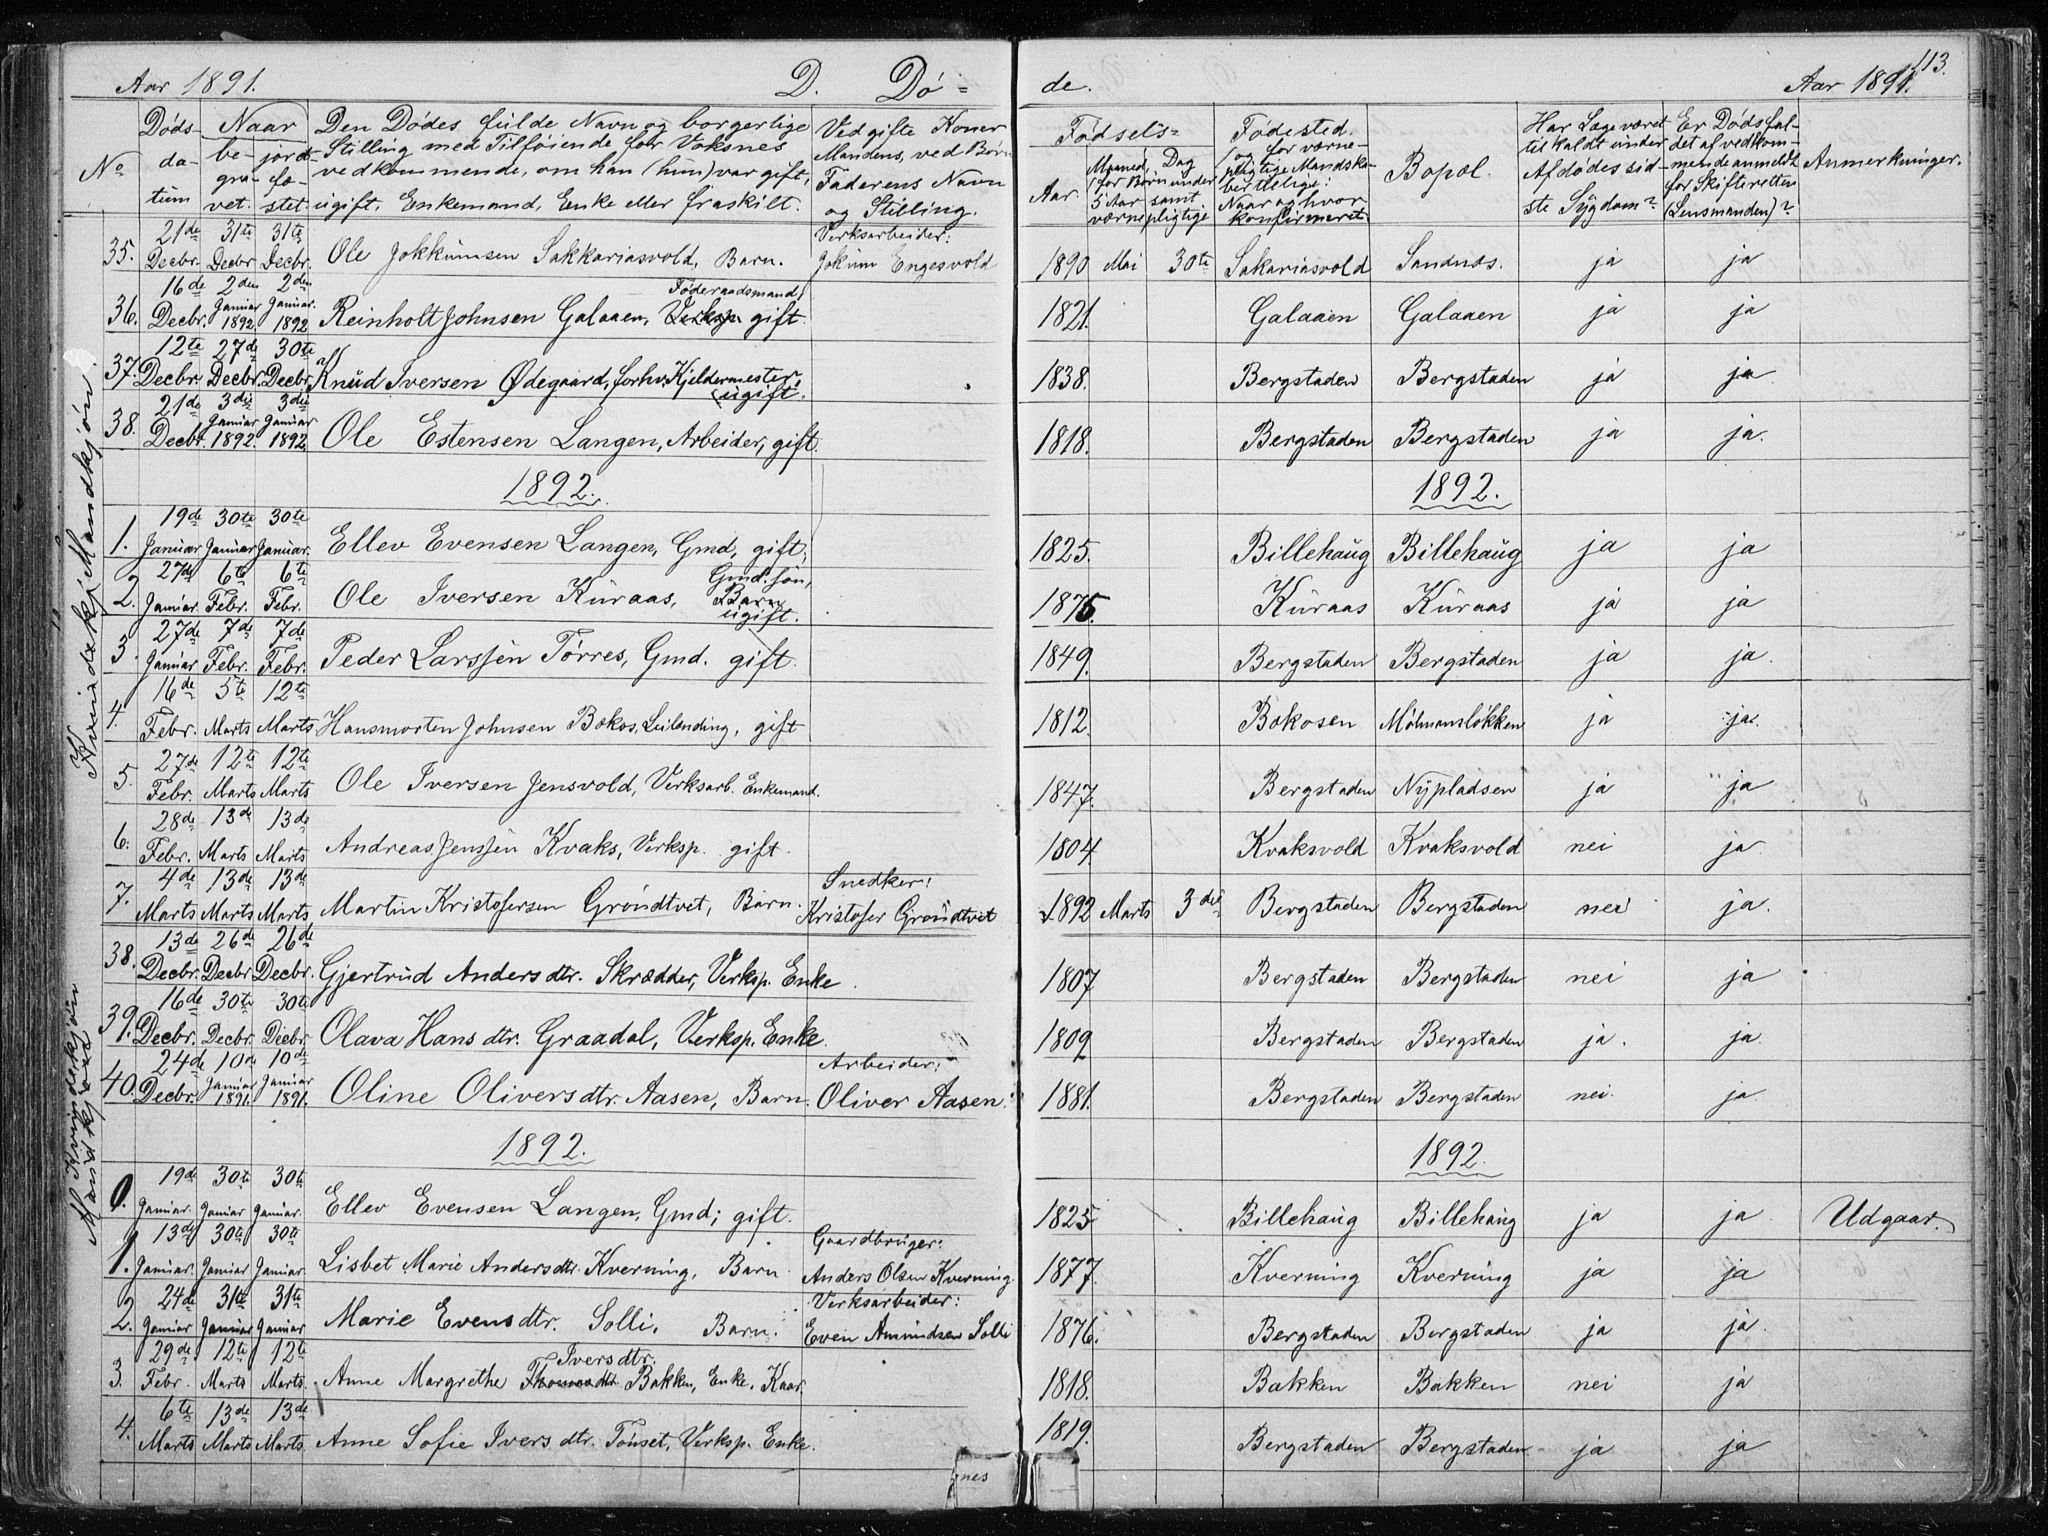 Aar 1891. D. Dø=
de. Aar 1891. 113.
No
Døds-
da-
tum
Naar
be-
gra-
vet.
jords-
fæ-
stet
Den Dødes fulde Navn og borgerlige
Stilling med Tilføiende for Voksnes
vedkommende, om han (hun) var gift,
ugift, Enkemand, Enke eller fraskilt.
Ved gifte Koner
Mandens, ved Børn
Faderens Navn
og Stilling.
Fødsels=
Aar.
Maaned, Dag
(for Børn under
5 Aar samt
værnepligtige
Fødested.
(og for værne-
pligtige Mandska-
ber tillige:
Naar og hvor
konfirmeret
Bopæl.
Har Læge været
tilkaldt under
Afdødes sid-
ste Sygdom?
Er Dødsfal-
det af vedkom-
mende anmeldt
for Skifteretten
(Lensmanden)?
Anmerkninger.
Mandkjøn.
35. 21de Decbr. 31te Decbr 31te Decbr. Ole Jokkumsen Sakkariasvold, Barn. Verksarbeider: Jokum Engesvold 1890 Mai 30te Sakariasvold Sandnæs. ja ja
36. 16de Decbr. 2den Januar 1892 2den Januar. 1892 Reinholt Johnsen Galaaen, Føderaadsmand, Verksp. gift. 1821. Galaaen Galaaen ja ja
37. 12te Decbr. 27de Decbr. 30te Decbr. Knud Iversen Ødegaard, forhv. Kjeldermester, ugift. 1838. Bergstaden Bergstaden ja ja
38. 21de Decbr. 3die Januar 1892. 3die Januar 1892. Ole Estensen Langen, Arbeider, gift. 1818. Bergstaden Bergstaden ja ja.
1892. 1892.
1. 19de Januar 30te Januar 30te Januar. Ellev Evensen Langen, Gmd, gift, 1825. Billehaug Billehaug ja ja
2. 27de Januar. 6te Febr. 6te Febr. Ole Iversen Kuraas, Gmd. søn, Barn, ugift. 1875. Kuraas Kuraas ja ja
3. 27de Januar 7de Febr. 7de Febr. Peder Larssen Tørres, Gmd. gift. 1849. Bergstaden Bergstaden ja ja.
4. 16de Febr. 5te Marts 12te Marts Hansmorten Johnsen Bokos, Leilænding, gift 1812. Bokosen Mølmansløkken ja ja.
5. 27de Febr. 12te Marts 12te Marts Ole Iversen Jensvold, Verksarb. Enkemand. 1847. Bergstaden Nypladsen ja ja
6. 28de Febr. 13de Marts 13de Marts Andreas Jenssen Kvaks, Verksp. gift. 1804 Kvaksvold Kvaksvold nei ja
7. 4de Marts 13de Marts 13de Marts Martin Kristofersen Grøndtvet, Barn. Snedker: Kristofer Grøndtvet 1892 Marts 3die Bergstaden Bergstaden nei ja.
38. 13de Decbr. 26de Decbr 26de Decbr. Gjertrud Andersdtr. Skrædder, Verksp. Enke. 1807 Bergstaden Bergstaden nei ja
39. 16de Decbr. 30te Decbr. 30te Decbr. Olava Hansdtr. Graadal, Verksp. Enke. 1809 Bergstaden Bergstaden ja. ja.
40. 24de Decbr. 10de Januar 1891. 10de Januar 1891. Oline Oliversdtr. Aasen, Barn. Arbeider: Oliver Aasen. 1881. Bergstaden Bergstaden nei. ja
1892. 1892.
0. 19de Januar. 30te Januar. 30te Januar. Ellev Evensen Langen, Gmd; gift. 1825 Billehaug Billehaug ja ja Udgaar.
1. 13de Januar. 30te Januar 30te Januar Lisbet Marie Andersdtr. Kverning, Barn Gaardbruger: Anders Olsen Kverning. 1877. Kverning Kverning ja ja
2. 24de Januar 31te Januar 31te Januar Marie Evensdtr. Solli, Barn. Verksarbeider: Even Amundsen Solli 1876. Bergstaden Bergstaden ja ja.
3. 29de Febr. 12te Marts 12te Marts. Anne Margrethe Iversdtr. Thomasdtr Bakken, Enke. Kaar. 1818. Bakken Bakken nei ja
4. 6te Marts 13de Marts 13de Marts. Anne Sofie Iversdtr. Tønset, Verksp. Enke. 1819. Bergstaden Bergstaden ja ja
nes